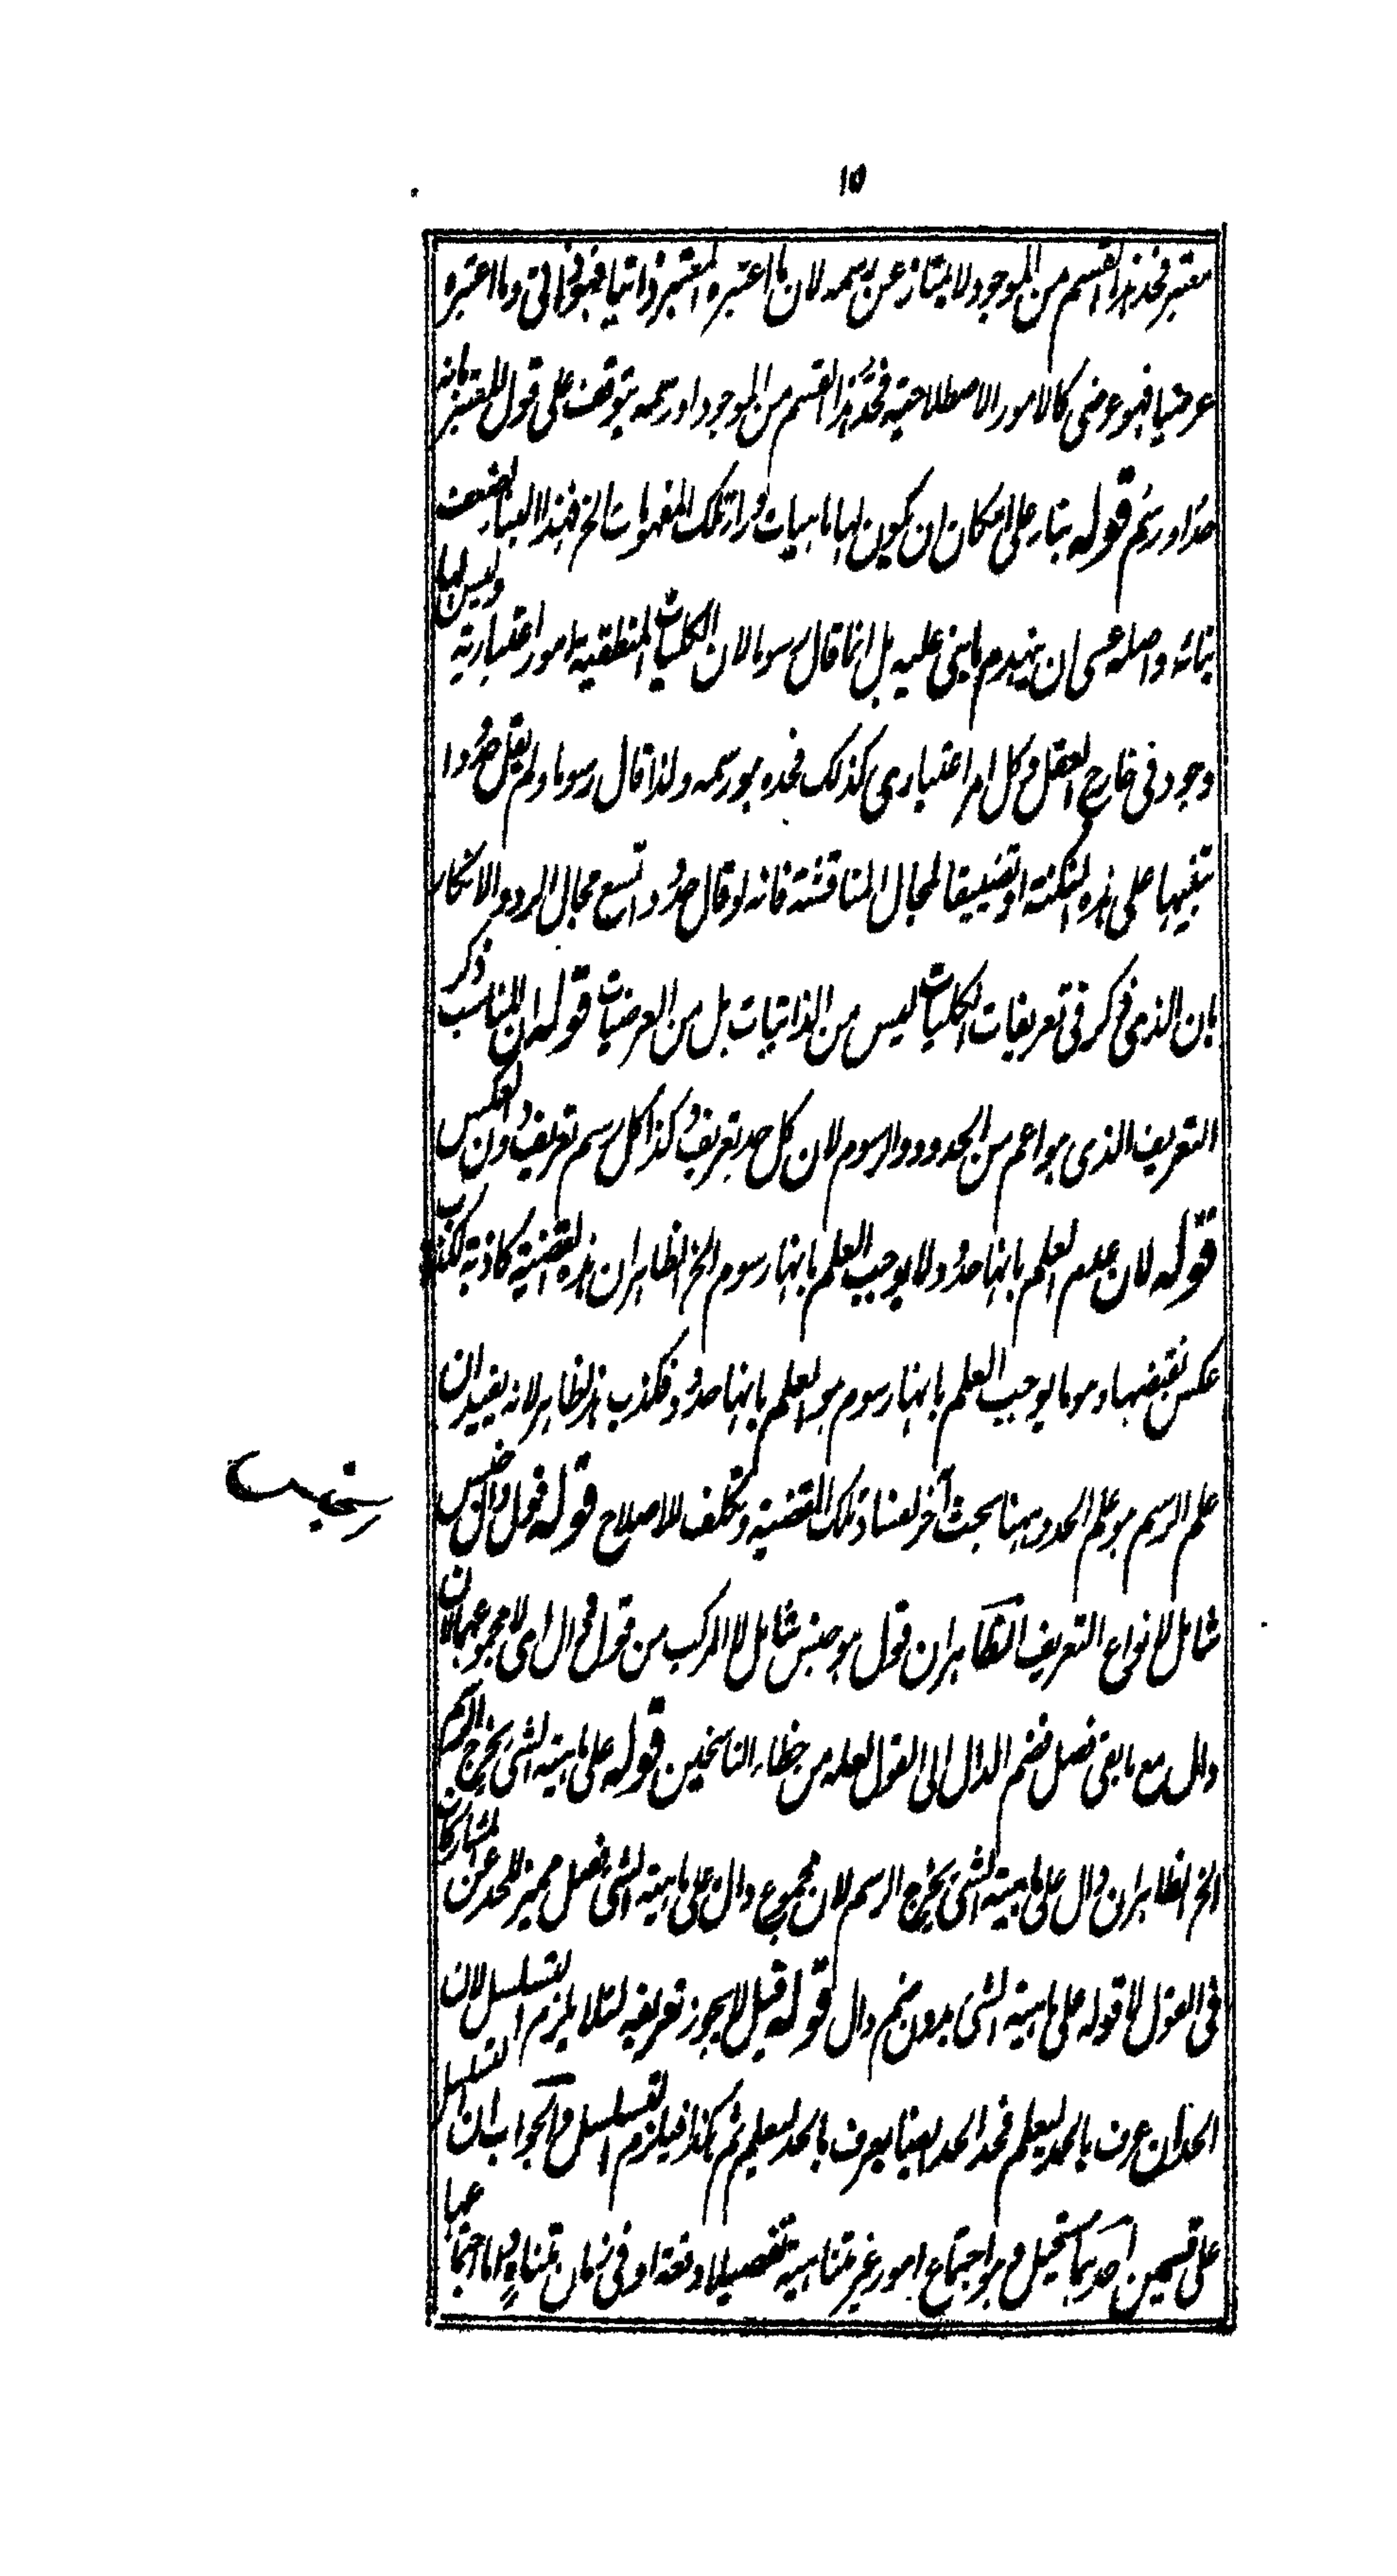 ١٥
معتبر فحد هذا القسم من الموجود لا يمتاز عن رسمه لان ما اعتبره المعتبر ذاتيا فهو ذاتى وما اعتبره
عرضيا فهو عرضى كالامور الاصطلاحية فحد هذا القسم من الموجود او رسمه يتوقف على قول المعتبر بانه
حد او رسم قوله بناء على امكان ان يكون لها ماهيات وراء تلك المفهومات الخ فهذا البناء ضعيف
بنائه واصله عسى ان ينهدم ما بنى عليه بل انما قال رسوما لان الكليات المنطقية امور اعتبارية وليس لها
وجود فى خارج العقل وكل امر اعتبارى كذلك فحده هو رسمه ولذا قال رسوما ولم يقل حدودا
تنبيها على هذه النكتة او تضييقا لمجال المناقشة فانه لو قال حدود اتسع مجال الرد والانكار
بان الذى ذكر فى تعريفات الكليات ليس من الذاتيات بل من العرضيات قوله ان المناسب ذكر
التعريف الذى هو اعم من الحدود والرسوم لان كل حد تعريف وكذا كل رسم تعريف دون العكس
قوله لان عدم العلم بانها حدود لا يوجب العلم بانها رسوم الخ الظاهر ان هذه القضية كاذبة لكذب
عكس نقيضها وهو ما يوجب العلم بانها رسوم هو العلم بانها حدود فكذب هذا ظاهر لانه يفيد ان
علم الرسم هو علم الحد وههنا بحث آخر لعناد تلك القضية وتكلف للاصلاح قوله قول دال جنس
شامل لانواع التعريف الظاهر ان قول هو جنس شامل لا المركب من قول دال اى لا مجموعهما لان
دال مع ما بقى فصل فضم الدال الى القول لعله من خطاء الناسخين قوله على ماهية الشئ يخرج الرسم
الخ الظاهر ان دال على ماهية الشئ يخرج الرسم لان مجموع دال على ماهية الشئ فصل مميز للحد عن المشاركات
فى القول لا قوله على ماهية الشئ بدون ضم دال قوله قيل لا يجوز تعريفه لئلا يلزم التسلسل لان
الحد ان عرف بالحد ليعلم فحد الحد ايضا يعرف بالحد ليعلم ثم هكذا فيلزم التسلسل والجواب ان التسلسل
على قسمين احدهما مستحيل وهو اجتماع امور غير متناهية تفصيلا دفعة او فى زمان متناه واما اجتماعها